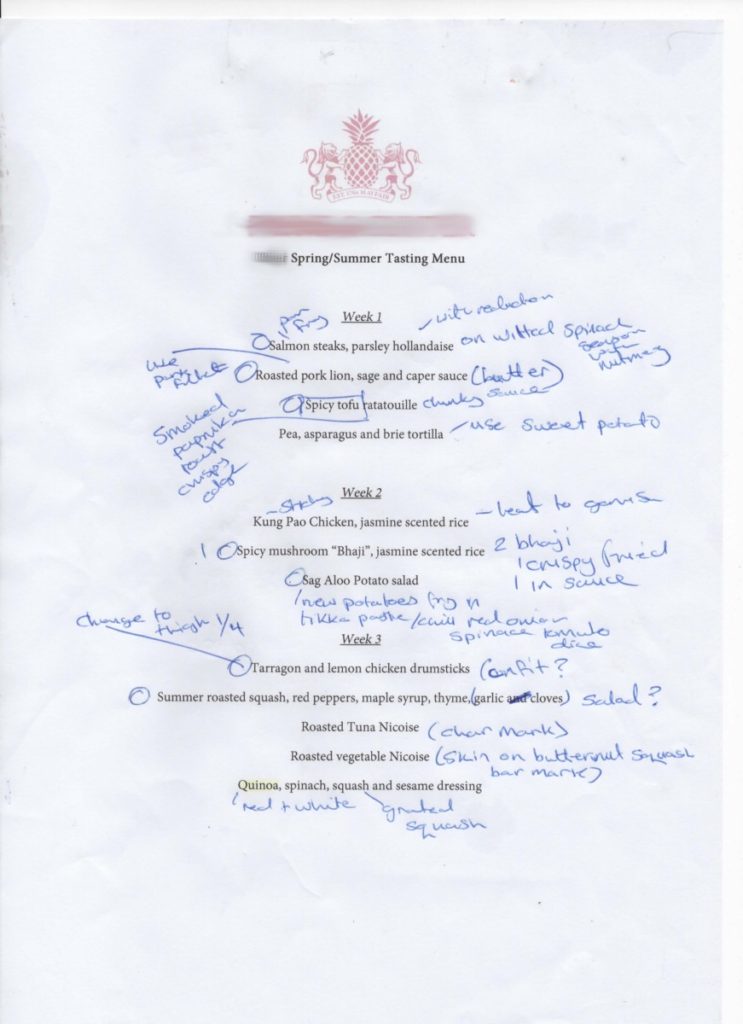 EST. 1764 MAYFAIR
Spring/Summer Tasting Menu
Week 1
pan
fry
with reduction
Salmon steaks, parsley hollandaise
on wilted spinach
season
with
nutmeg
use
pork
fillet
Roasted pork lion, sage and caper sauce (butter)
Spicy tofu ratatouille chunky sauce
Smoked
paprika
crispy
edge
Pea, asparagus and brie tortilla - use sweet potato
Week 2
- Sticky
Kung Pao Chicken, jasmine scented rice
1 Spicy mushroom "Bhaji", jasmine scented rice 2 bhaji
1 crispy fried
1 in sauce
Sag Aloo Potato salad
new potatoes fry in
tikka paste/chilli red onion
spinach tomato
dice
Week 3
change to
thigh 1/4
Tarragon and lemon chicken drumsticks (confit?
Summer roasted squash, red peppers, maple syrup, thyme,(garlic and cloves) Salad?
Roasted Tuna Nicoise (char mark)
Roasted vegetable Nicoise (skin on butternut squash
bar mark)
Quinoa, spinach, squash and sesame dressing
red + white
grated
squash